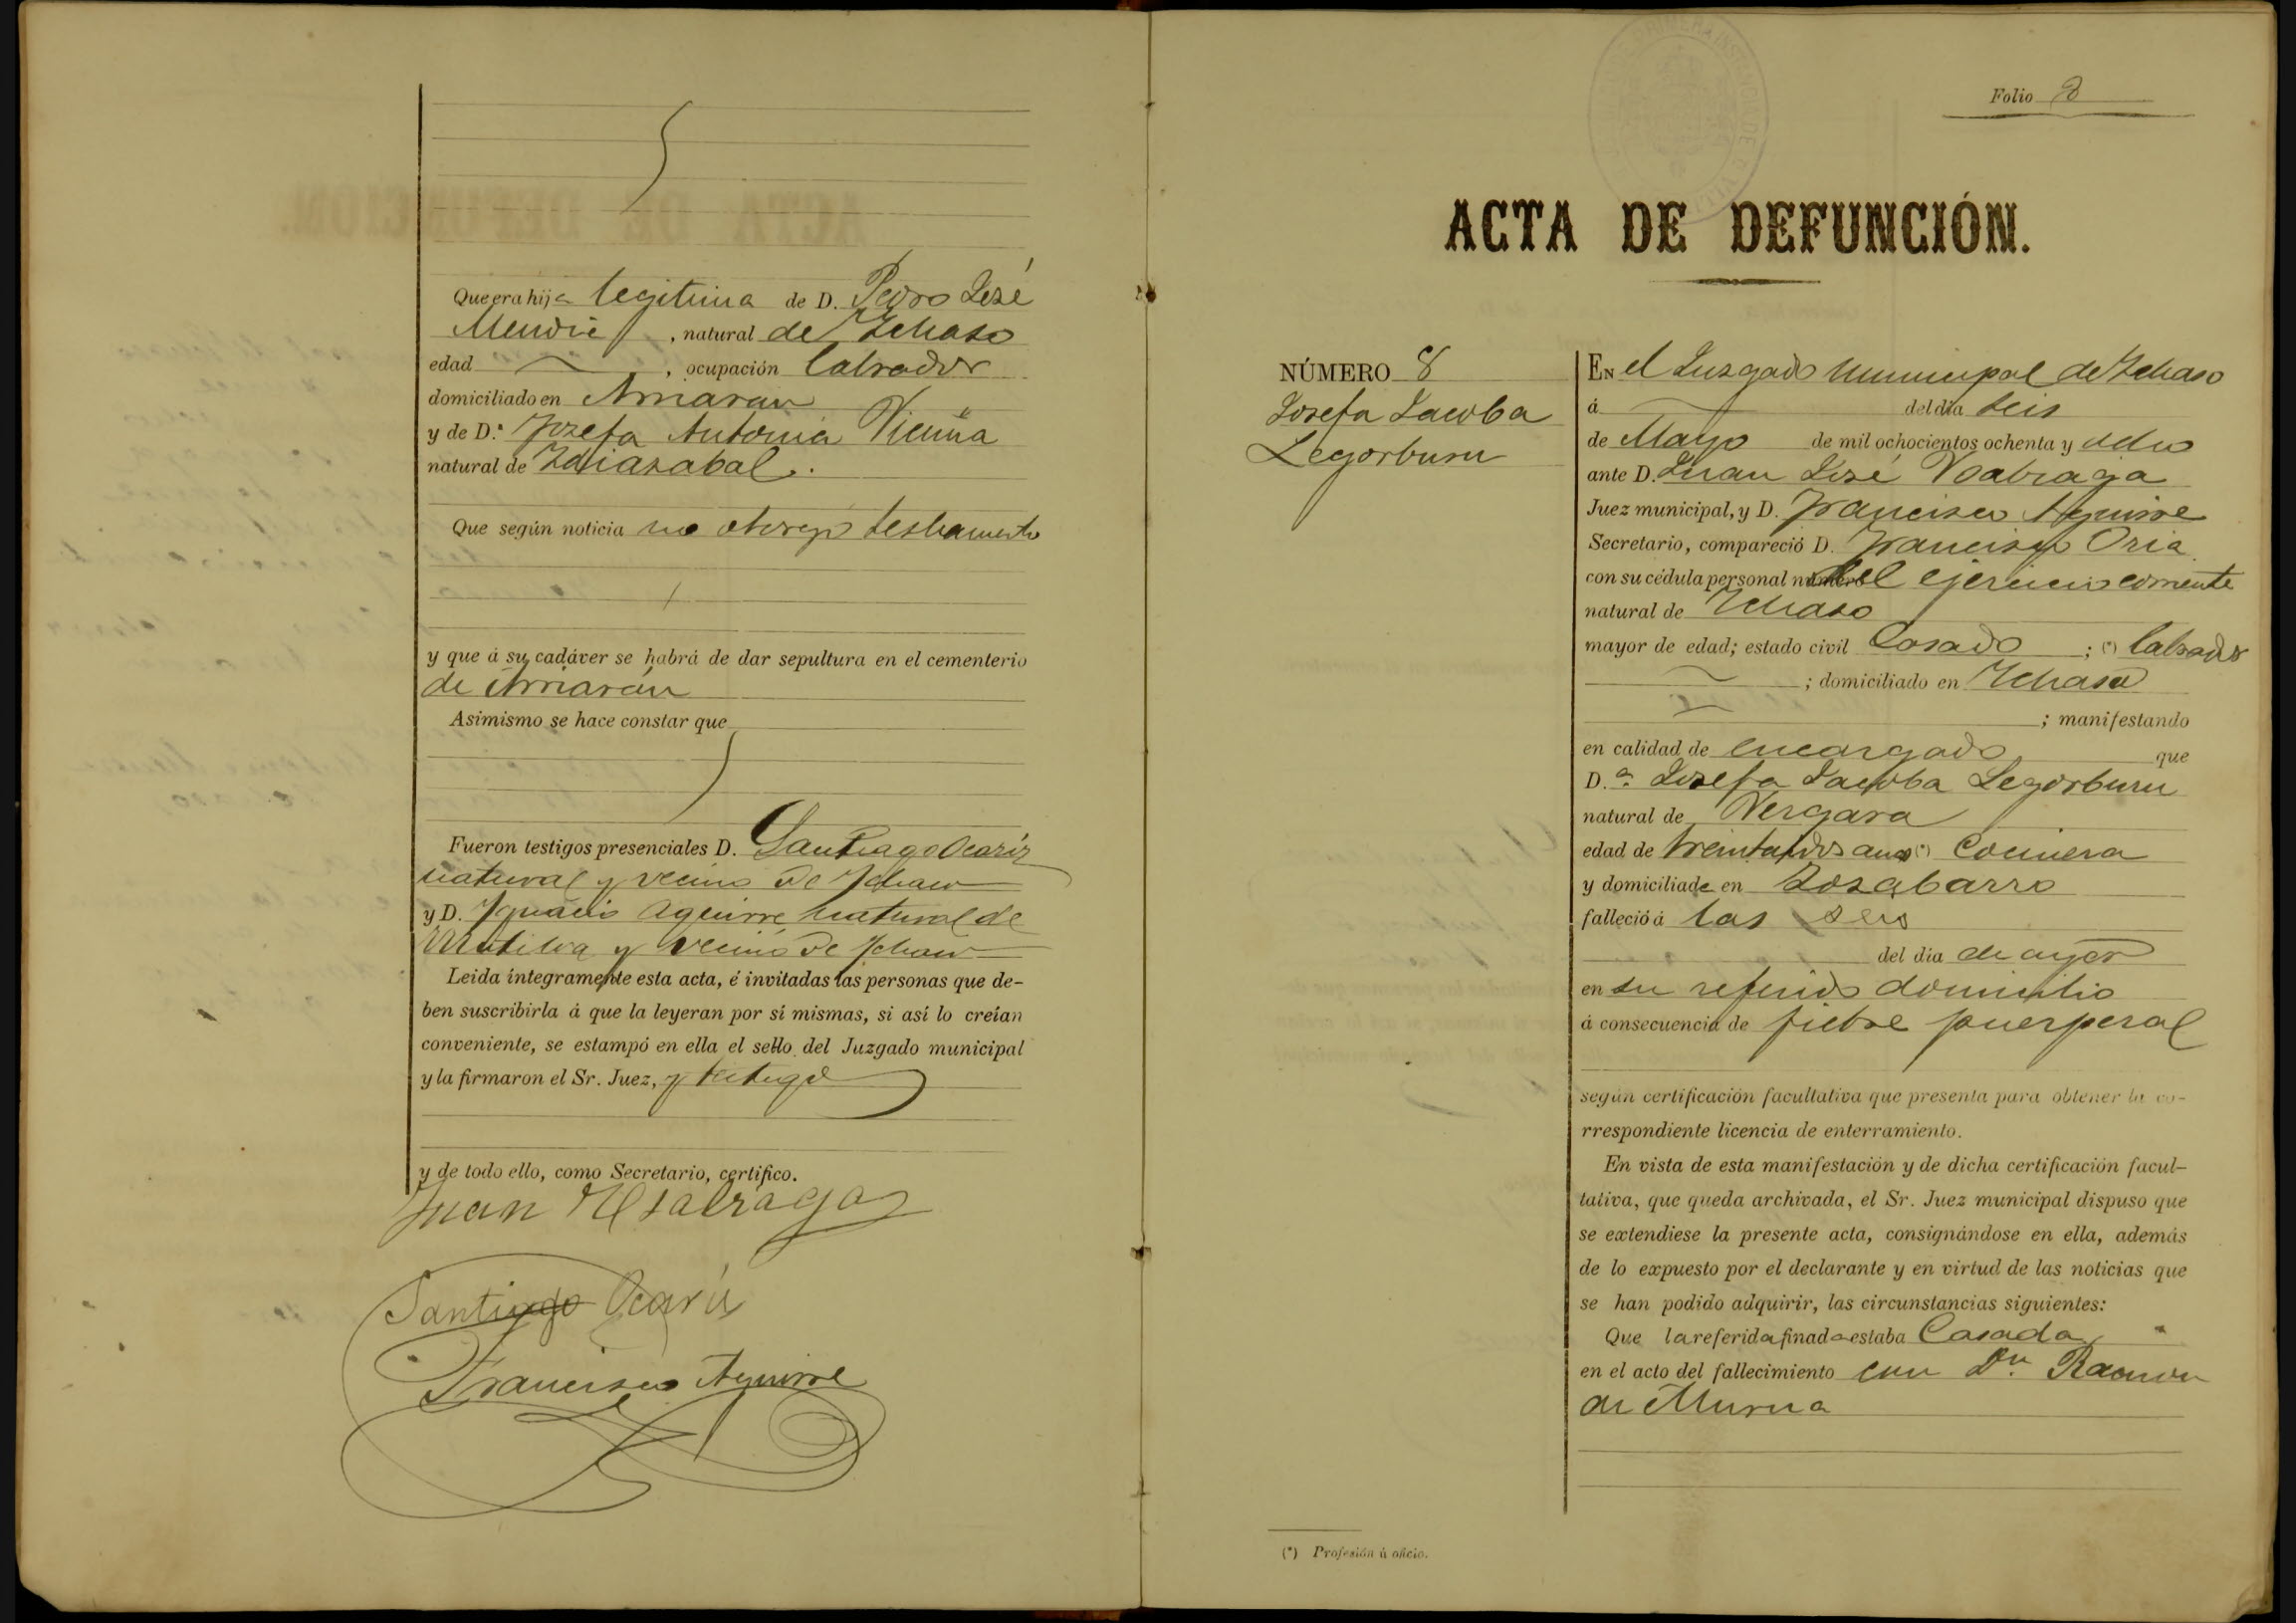 Que era hija legitima de D. Pedro José
Mendia, natural de Ichaso
edad , ocupación labrador
domiciliado en Arriaran
y de D.ª Josefa Antonia Vicuña
natural de Idiazabal.
Que según noticia no otorgó testamento
y que á su cadáver se habrá de dar sepultura en el cementerio
de Arriarán
Asimismo se hace constar que
Fueron testigos presenciales D. Santiago Ocariz
natural y vecino de Ichaso
y D. Ignacio Aguirre natural de
Mutiloa y vecino de Ichaso
Leida íntegramente esta acta, é invitadas las personas que de-
ben suscribirla á que la leyeran por sí mismas, si así lo creían
conveniente, se estampó en ella el sello del Juzgado municipal
y la firmaron el Sr. Juez, y testigos
y de todo ello, como Secretario, certifico.
Juan
Santiago Ocariz
Francisco Aguirre
Folio 8
ACTA DE DEFUNCIÓN.
NÚMERO 8
Josefa Jacoba
Legorburu
EN el Juzgado municipal de Ichaso
á del dia seis
de Mayo de mil ochocientos ochenta y ocho
ante D. Juan José
Juez municipal, y D. Francisco Aguirre
Secretario, compareció D. Francisco Oria
con su cédula personal número del ejercicio corriente
natural de Ichaso
mayor de edad; estado civil Casado ; (*) labrador
; domiciliado en Ichaso
; manifestando
en calidad de encargado que
D.ª Josefa Jacoba Legorburu
natural de Vergara
edad de treinta y dos años (*) Cocinera
y domiciliada en
falleció á las seis
del dia de ayer
en su referido domicilio
á consecuencia de fiebre puerperal
según certificación facultativa que presenta para obtener la co-
rrespondiente licencia de enterramiento.
En vista de esta manifestación y de dicha certificación facul-
tativa, que queda archivada, el Sr. Juez municipal dispuso que
se extendiese la presente acta, consignándose en ella, además
de lo expuesto por el declarante y en virtud de las noticias que
se han podido adquirir, las circunstancias siguientes:
Que la referida finada estaba Casada
en el acto del fallecimiento con Dn. Ramon
de Murua
(*) Profesión ú oficio.